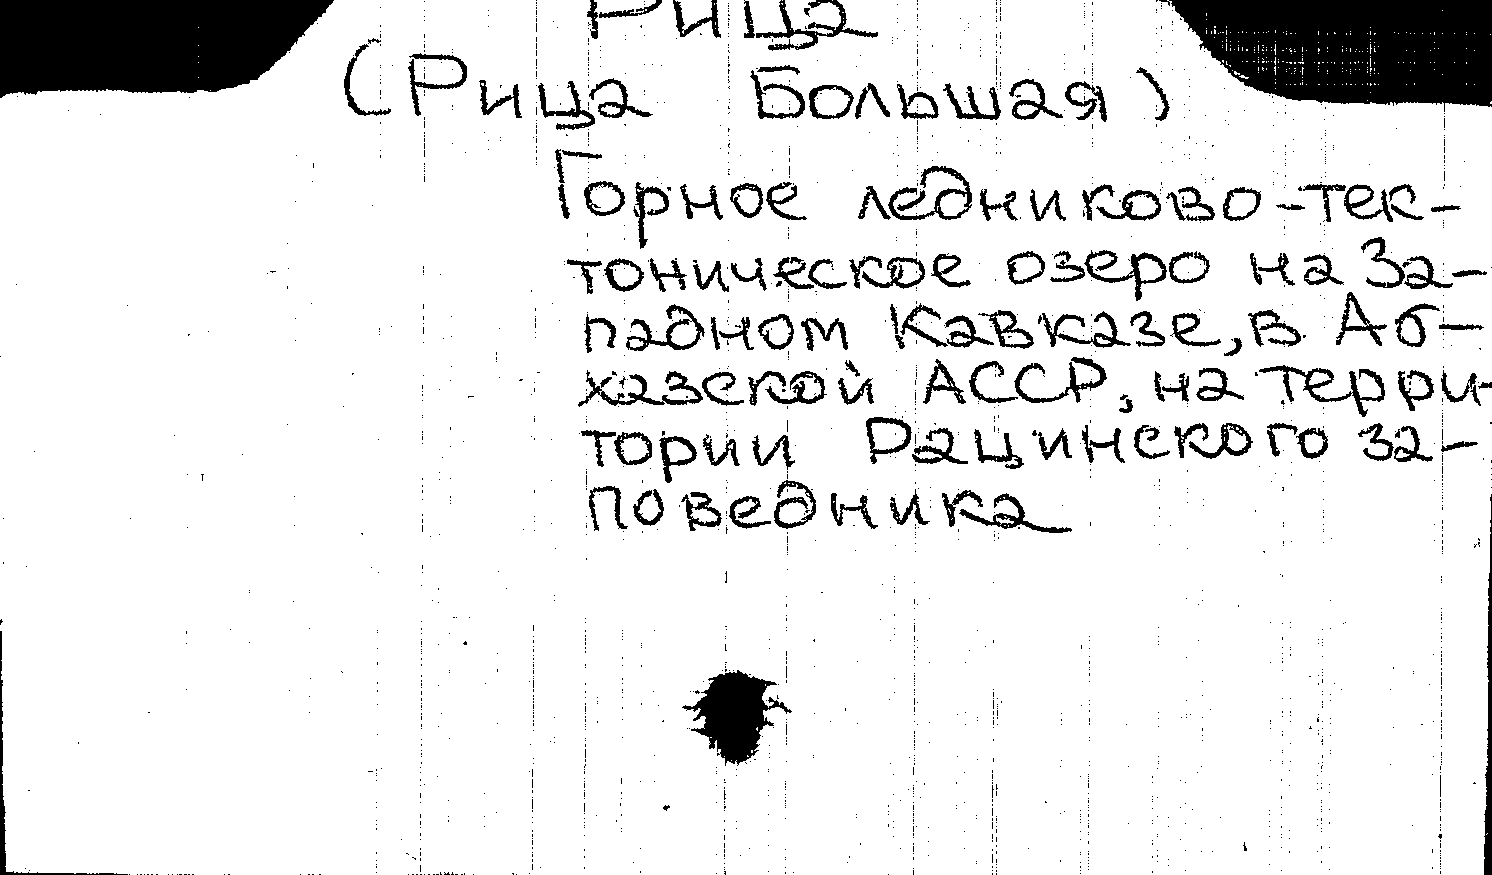 Рица
(Рица Большая)
Горное ледниково-тек-
тоническое озеро на За-
падном Кавказе, в Аб-
хазской АССР, на терри-
тории Рацинского за-
поведника